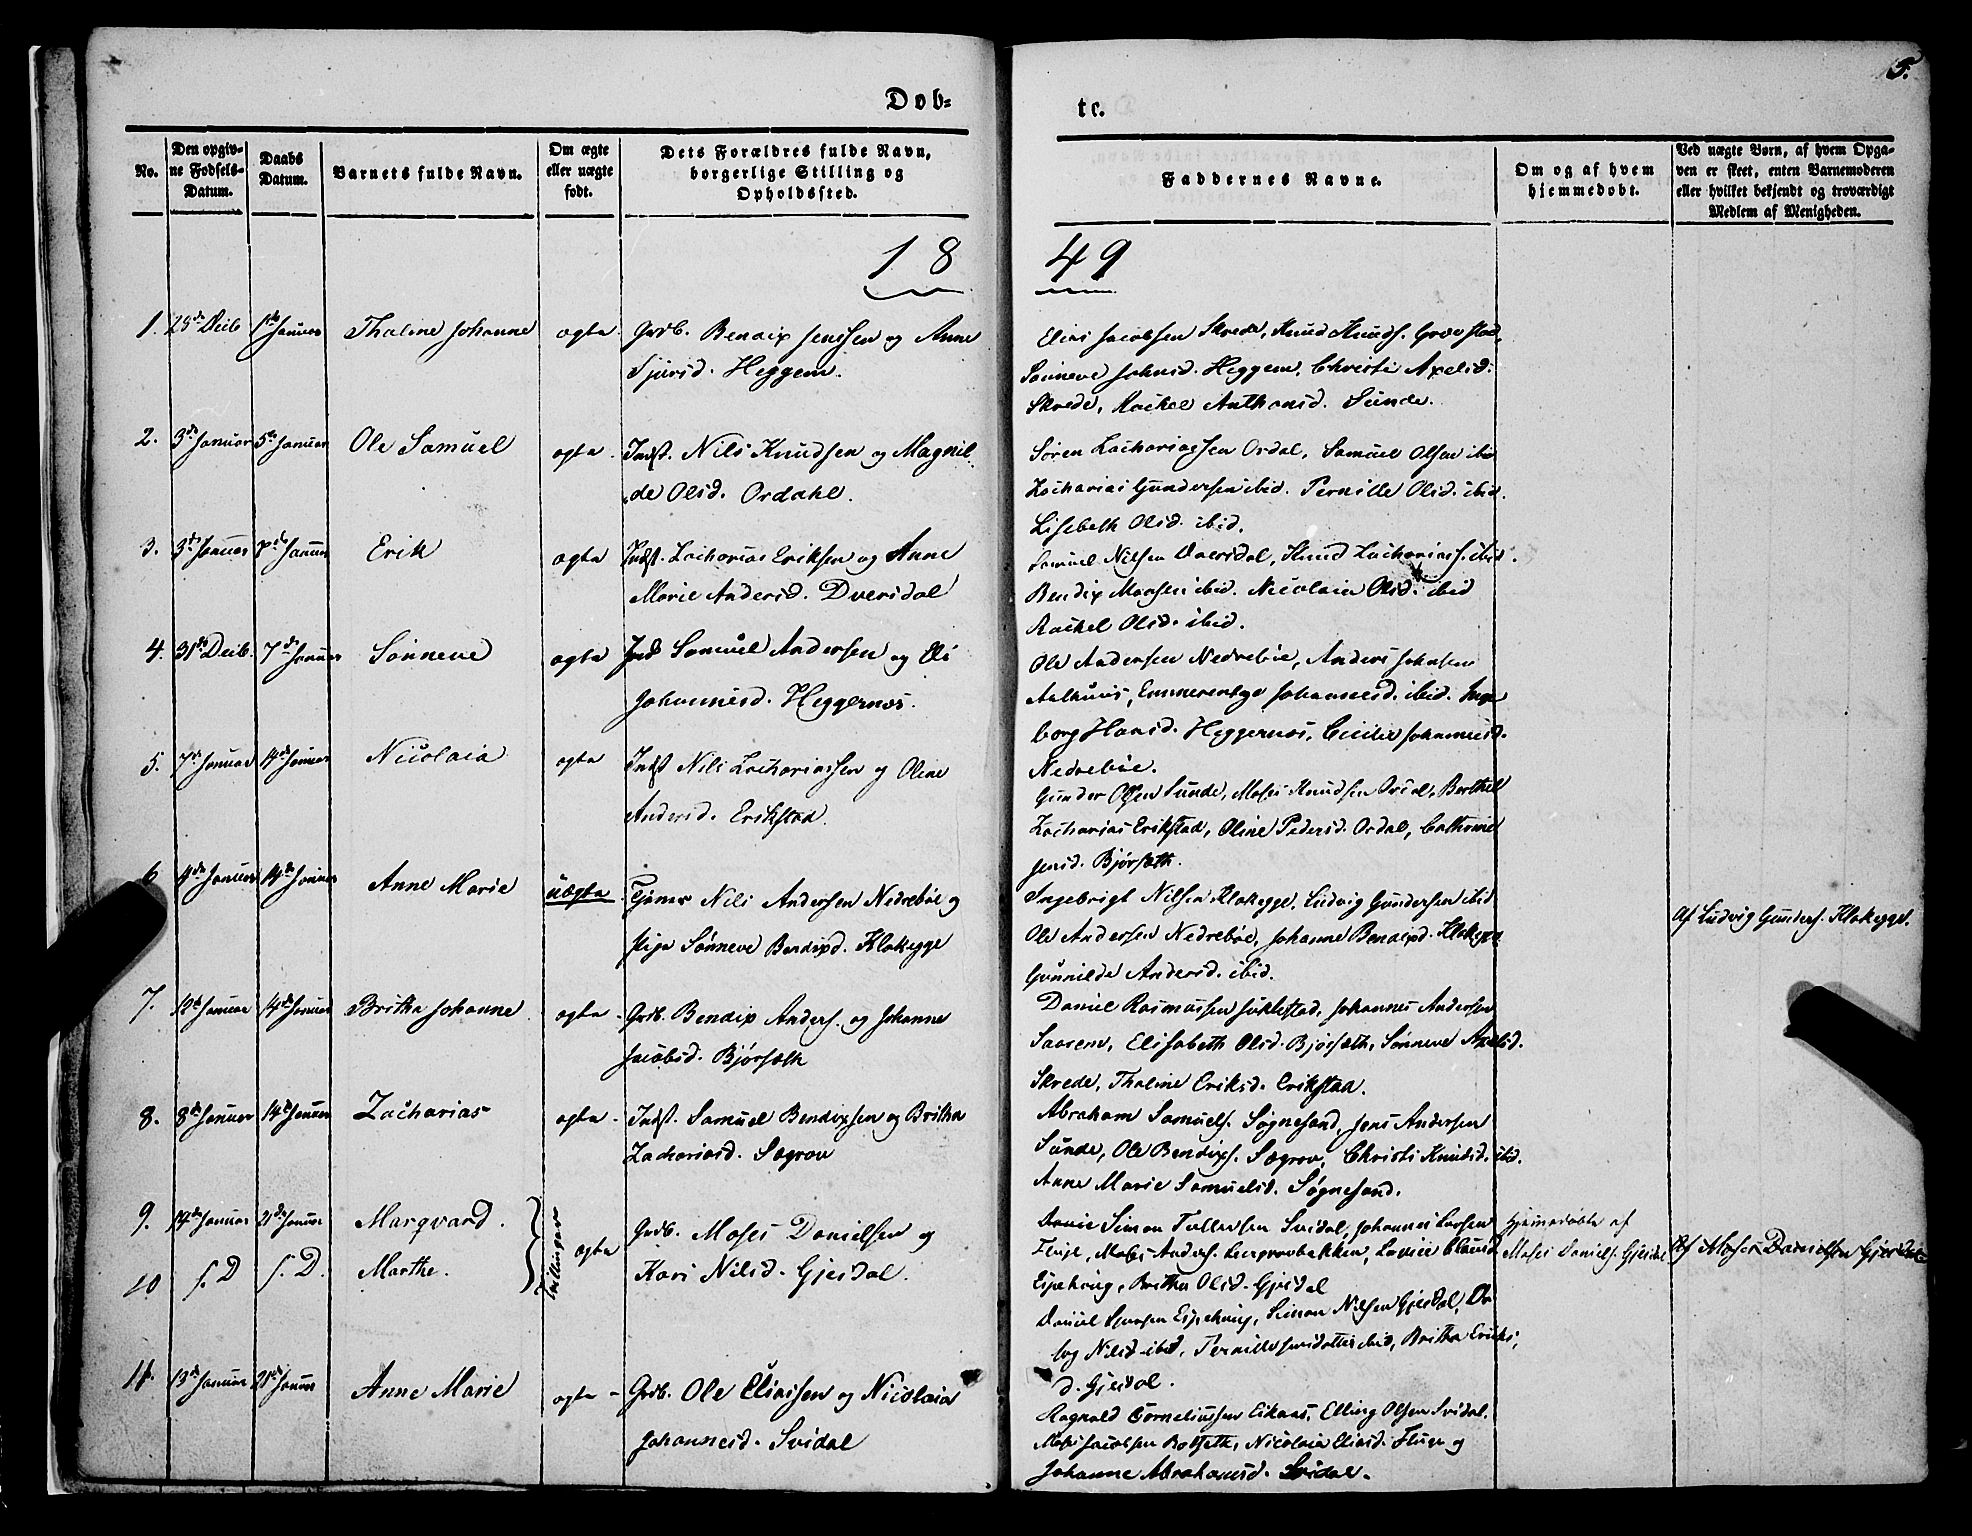 5.
Døb=
te.
No.
Den opgiv-
ne Fødsels-
Datum.
Daabs
Datum.
Barnets fulde Navn.
Om ægte
eller uægte
født.
Dets Forældres fulde Navn,
borgerlige Stilling og
Opholdssted.
Faddernes Navne.
Om og af hvem
hjemmedøbt.
Ved uægte Børn, af hvem Opga-
ven er skeet, enten Barnemoderen
eller hvilket bekjendt og troværdigt
Medlem af Menigheden.
18
49
1. 1ste Januar Thaline Johanne ægte Grdb. Bendix Jenssen og Anne
Sjursd. Heggem.
Elias Jacobsen Skrede, Knud Knuds.
Sønneve Johnsd. Heggem, Christi Axelsd.
Skrede, Rachel Anthonsd. Sunde.
2. 3de Januar 5te Januar Ole Samuel ægte Indst. Nils Knudsen og Magnil
de Olsd. Ordahl.
Søren Zachariassen Ordal, Samuel Olsen ibid
Zacharias Gundersen ibid. Pernille Olsd. ibid.
Lisebeth Olsd. ibid.
3. 3de Januar 7de Januar Erik ægte Indst. Zacharias Eriksen og Anne
Marie Andersd. Dversdal
Samuel Nilsen Dversdal, Knud Zacharias. ibid.
Bendix Monsen ibid. Nicolaia Olsd. ibid
Rachel Olsd. ibid.
4. 31te Decb. 7de Januar Sønneve ægte Ind Samuel Andersen og Eli
Johannesd. Heggernæs.
Ole Andersen Nedrebøe, Anders Johnsen
Aalhuus, Emmerentze Johannesd. ibid. Inge
borg Hansd. Heggernæs, Cicilie Johannesd.
Nedrebøe.
5. 7de Januar 14de Januar Nicolaia ægte Indst Nils Zachariassen og Oline
Andersd. Erikstad.
Gunder Olsen Sunde, Moses Knudsen Ordal, Berthel
Zacharias Erikstad, Oline Pedersd. Ordal, Cathrine
Jensd. Bjørsæth.
6 4de Januar 14de Januar Anne Marie uægte Tjener Nils Andersen Nedrebøe og
Pige Sønneve Bendixd. Klakegge
Ingebrigt Nilsen Klakegge, Ludvig Gundersen ibid
Ole Andersen Nedrebøe, Johanne Bendixd. Klakegge
Gunnilde Andersd. ibid.
Af Ludvig Gunders. Klakegge.
7. 12te Januar 14de Januar Britha Johanne ægte Grdb. Bendix Anders. og Johanne
Jacobsd. Bjørsæth
Daniel Rasmussen Juklestad, Johannes Andersen
Saarem, Elisabeth Olsd. Bjørsæth, Sønneve Axelsd.
Skrede, Thaline Eriksd. Erikstad.
8. 8de Januar 14de Januar Zacharias ægte Indst. Samuel Bendixsen og Britha
Zachariasd. Søgrov
Abraham Samuels. Søgnesand, Jens Andersen
Sunde, Ole Bendixs. Søgrov, Christi Knudsd. ibid.
Anne Marie Samuelsd. Søgnesand.
9. 14de Januar 21de Januar Marqvard.
10 s. D s. D. Marthe.
Tvillinger
ægte Grdb. Moses Danielsen og
Kari Nilsd. Gjesdal.
Simon Tollersen Svidal, Johannes Larsen
Fluge, Moses Anders. Leergrovbakken, Lavise Clausd
Eipehoug, Britha Olsd. Gjesdal
Daniel Eipehoug, Simon Nilsen Gjesdal, Or
log Nilsd ibid, Pernille Jensdatter ibid, Britha Eriks,
d. Gjesdal.
Hjemmedøbte af
Moses Daniels. Gjesdal
Af Moses Danielsen Gjesdal
11. 13de Januar 21de Januar Anne Marie ægte Grdb. Ole Eliassen og Nicolaia
Johannesd. Svidal
Ragnald Corneliussen Eikaas, Elling Olsen Svidal.
Moses Jacobsen Botseth, Nicolaia Eliasd. Fluge og
Johanne Abrahamsd. Svidal.